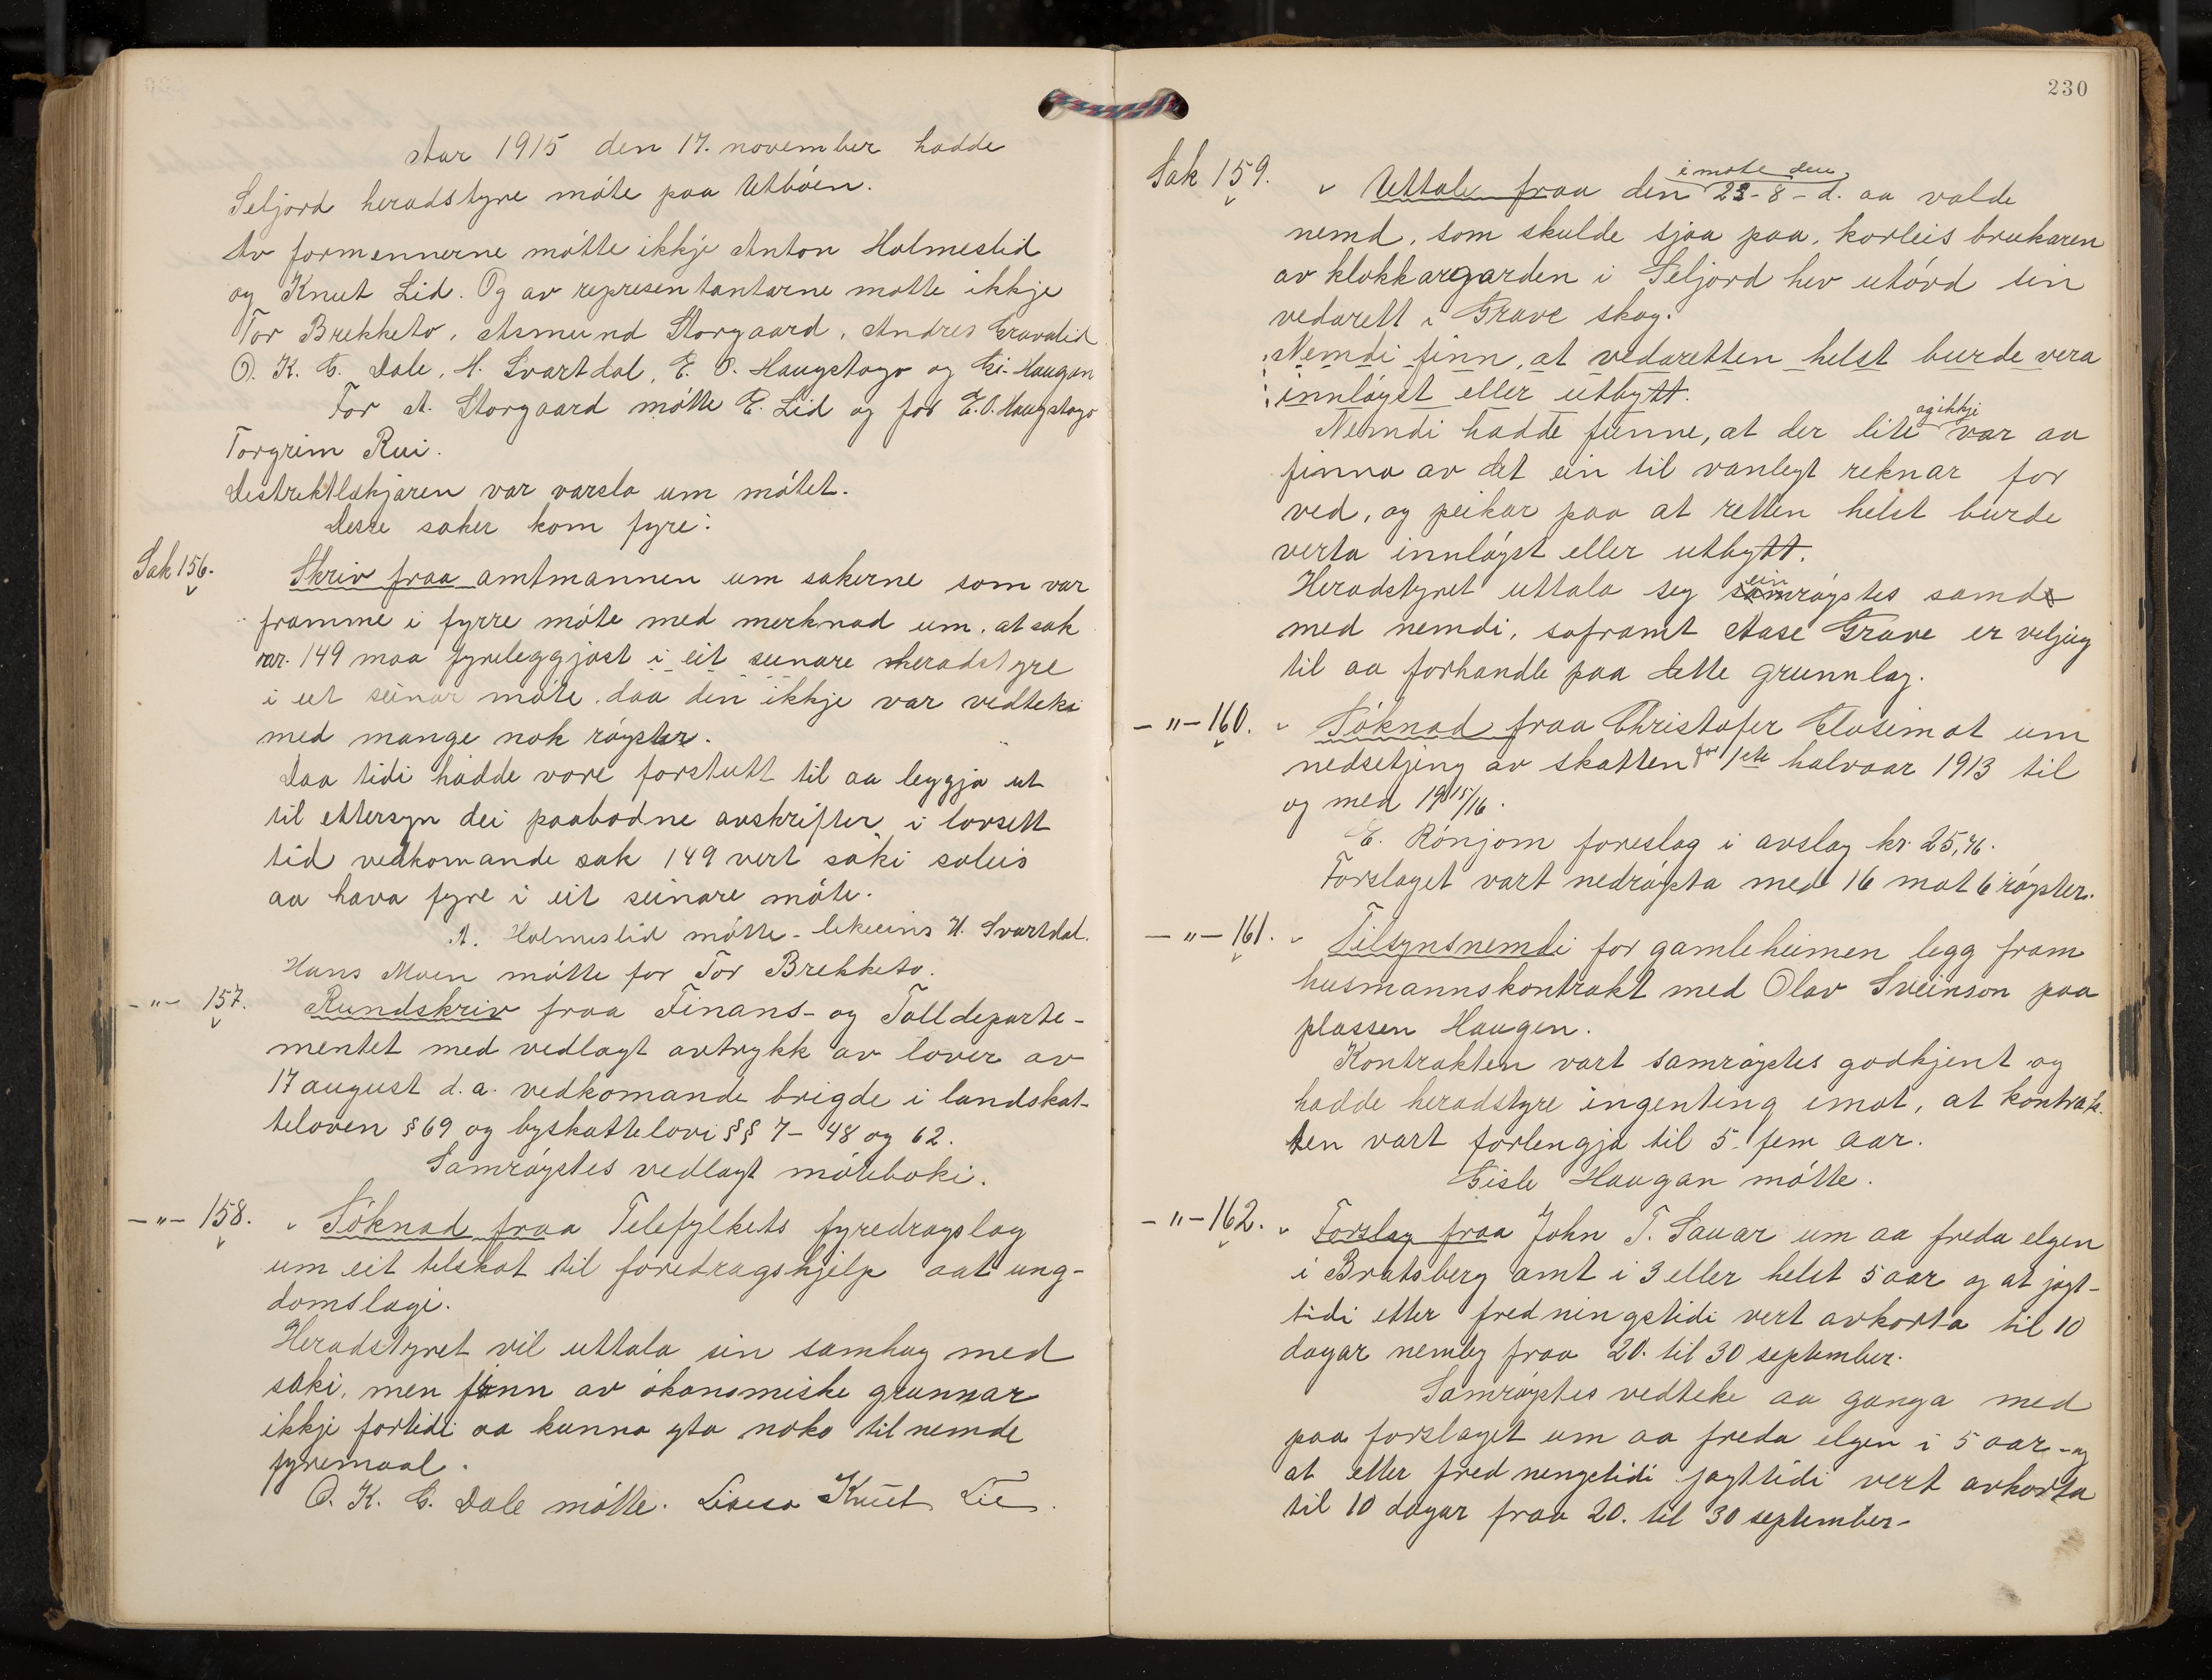 Aar 1915 den 17. november hadde
Seljord heradstyre móte paa Utbóen.
Av formennerne mótte ikkje Anton Holmeslid
og Knut Lid. Og av representantarne motte ikkje
Tor Brekketo, Asmund Storgaard, Andres Gravalid
O. K. G. Dale, H. Svartdal, E. O. Haugstogo og Gi. Haugan
For A. Storgaard mótte E. Lid og for E. O. Haugstogo
Torgrim Rui.
Destriktlækjaren var varsla um mótet.
Desse saker kom fyre:
Sak 156. Skriv fraa amtmannen um sakerne som var
framme i fyrre móte med merknad um, at sak
nr. 149 maa fyreleggjast i eit seinare heradstyre
i eit seinar móte, daa den ikkje var vedteki
med mange nok róyster.
Daa tidi hadde vore forstutt til aa leggja ut
til ettersyn dei paabodne avskrifter i lovsett
tid vedkomande sak 149 vert saki soleis
aa hava fyre i eit seinare móte.
A. Holmeslid mótte - likeeins H. Svartdal.
Hans Moen mótte for Tor Brekketo.
-"- 157. Rundskriv fraa Finans- og Tolldeparte-
mentet med vedlagt avtrykk av lover av
17 august d.a. vedkomande brigde i landskat-
teloven § 69 og byskattelovi §§ 7 - 48 og 62.
Samróystes vedlagt móteboki.
-"- 158. Sóknad fraa Telefylkets fyredragslag
um eit tilskot til foredragshjelp aat ung-
domslagi.
Heradstyret vil uttala sin samhug med
saki, men finn av ókonomiske grunnar
ikkje fortidi aa kunna yta noko til nemde
fyremaal.
O. K. G. Dale mótte. Knut Lid.
230
Sak 159. Uttale fraa den i mote den 23-8- d. aa valde
nemd, som skulde sjaa paa, korleis brukaren
av klokkargarden i Seljord hev utóvd sin
vedarett i Grave skog.
Nemdi finn, at vedaretten helst burde vera
innlóyst eller utbytt.
Nemdi hadde funne, at der lite og ikkje var aa
finna av det ein til vanlegt reknar for
ved, og peikar paa at retten helst burde
verta innlóyst eller utbytt.
Heradstyret uttala seg einróystes samd
med nemdi, soframt Aase Grave er veljug
til aa forhandle paa dette grunnlag.
-"- 160. Sóknad fraa Christofer Klosimot um
nedsetjing av skatten for 1ste halvaar 1913 til
og med 1915/16.
E. Rónjom foreslog i avslag kr. 25,76.
Forslaget vart nedróysta med 16 mot 6 róyster.
-"- 161. Tilsynsnemdi for gamleheimen legg fram
husmannskontrakt med Olav Sveinson paa
plassen Haugen.
Kontrakten vart samróystes godkjent og
hadde heradstyre ingenting imot, at kontrak-
ten vart forlengja til 5 - fem aar.
Gisle Haugan mótte.
-"- 162. Forslag fraa John T. Sauar um aa freda elgen
i Bratsberg amt i 3 eller helst 5 aar og at jagt-
tidi etter fredningstidi vert avkorta til 10
dagar nemleg fraa 20. til 30 september.
Samróystes vedteke aa ganga med
paa forslaget um aa freda elgen i 5 aar - og
at etter fredningstidi jagttidi vert avkorta
til 10 dagar fraa 20. til 30 september -